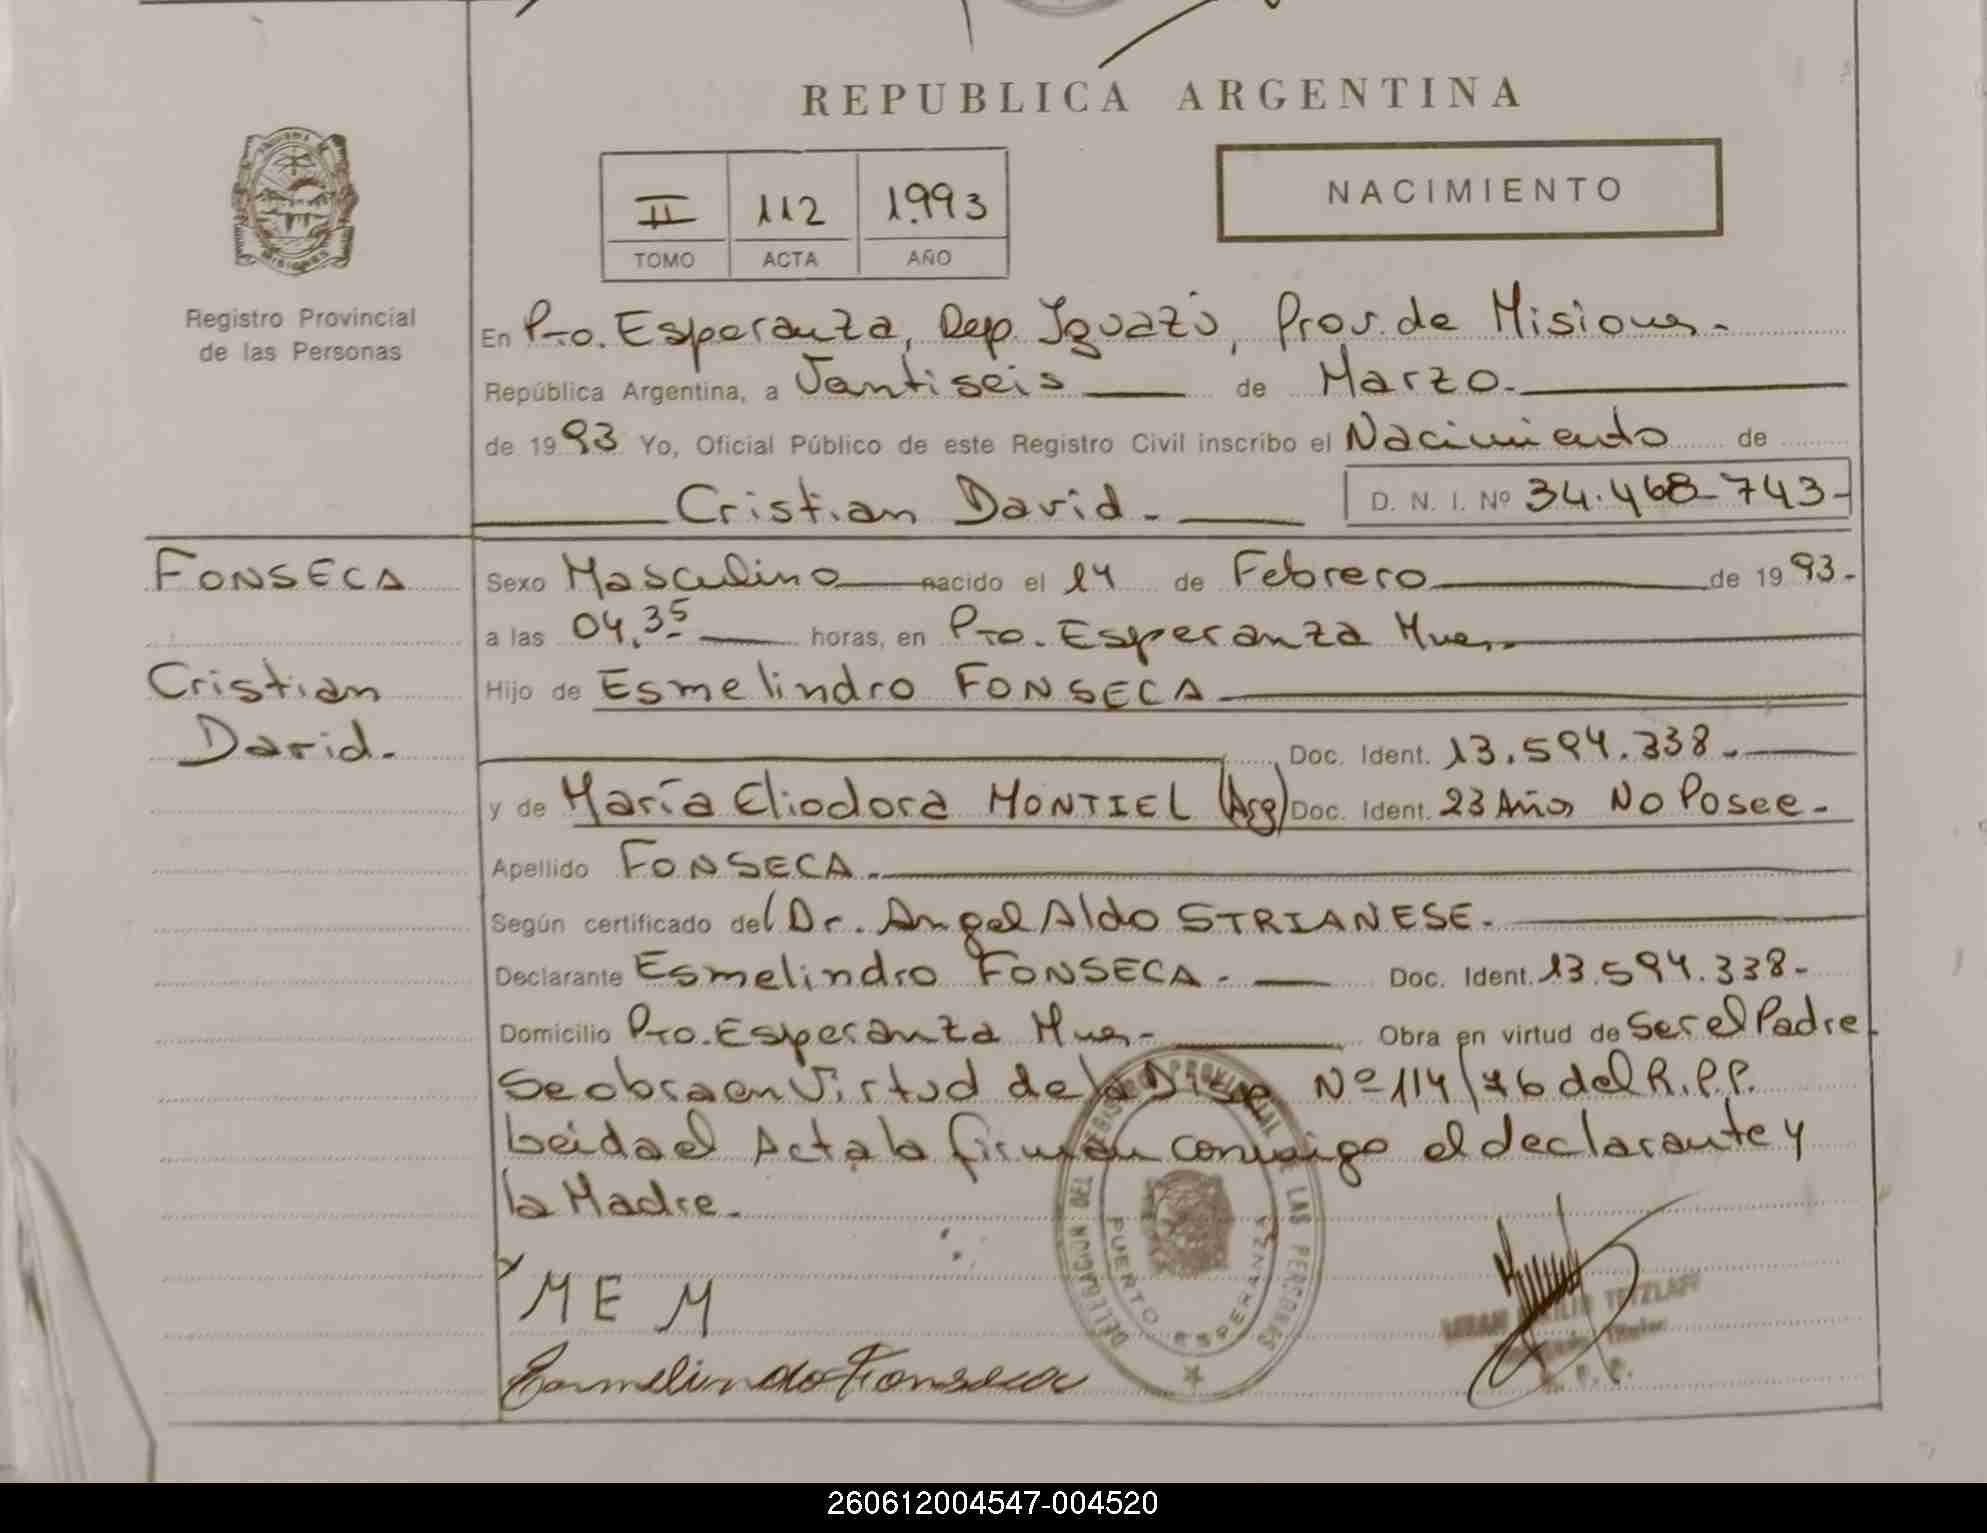 REPUBLICA ARGENTINA
II 112 1993
TOMO ACTA AÑO
NACIMIENTO
MISIONES
Registro Provincial
de las Personas
En Pto. Esperanza, Dep. Iguazú, Prov. de Misiones.
República Argentina, a Vantiseis de Marzo.
de 1993 Yo, Oficial Público de este Registro Civil inscribo el Nacimiento de
Cristian David. D. N. I. Nº 34.468.743-
FONSECA
Cristian
David.
Sexo Masculino nacido el 14 de Febrero de 1993.
a las 04,35 horas, en Pto. Esperanza Mnes.
Hijo de Esmelindro FONSECA
Doc. Ident. 13.594.338.
y de María Eliodora MONTIEL (Arg) Doc. Ident. 23 Años No Posee.
Apellido FONSECA.
Según certificado del Dr. Angel Aldo STRIANESE.
Declarante Esmelindro FONSECA. Doc. Ident. 13.594.338.
Domicilio Pto. Esperanza Mnes. Obra en virtud de Ser el Padre.
Se obra en Virtud de la Disp. Nº 114/76 del R.P.P.
Leida el Acta la firman conmigo el declarante y
la Madre.
DELEGACION DEL REGISTRO PROVINCIAL DE LAS PERSONAS
PUERTO ESPERANZA
M E M
Esmelindo Fonseca
TETZLAFF
Titular
R. P. P.
260612004547-004520